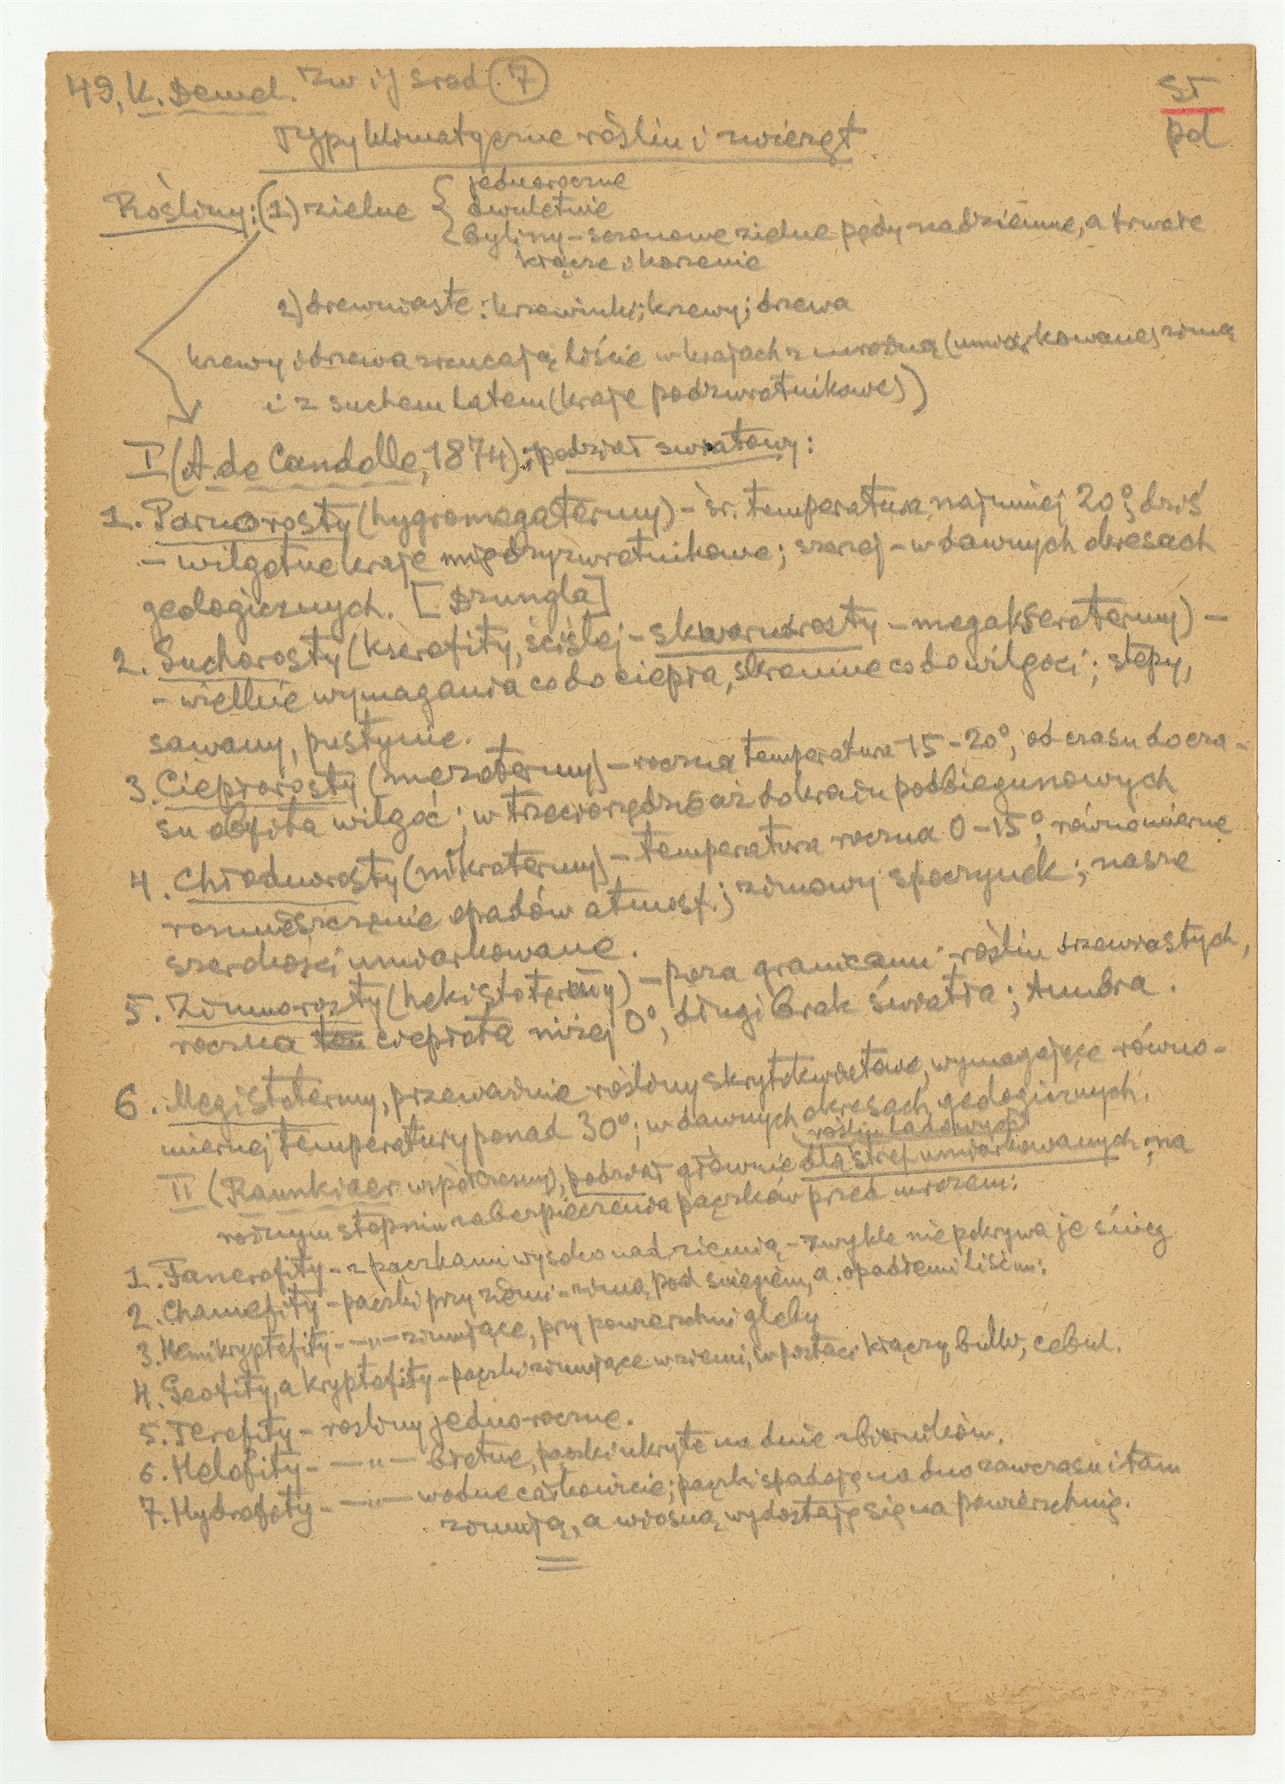 49. K. Demel. Zw ij srod (7)
ST
pol
Typy klimatyczne roślin i zwierzęt
Rośliny: (1) zielne { jednoroczne
dwuletnie
Byliny – sezonowe zielne pędy nadziemne, a trwałe
kłącze i korzenie
2) drewniaste: krzewinki; krzewy; drzewa
krzewy i drzewa zrzucają liście w krajach z mroźną (umiarkowane) zimą
i z suchem latem (kraje podzwrotnikowe))
I (A. de Candolle, 1874); podział światowy:
1. Parnorosty (hygromegatermy) – śr. temperatura najmniej 20°; dziś
– wilgotne kraje międzyzwrotnikowe; szerzej – w dawnych okresach
geologicznych. [Dzungla]
2. Suchorosty (kserofity, ściślej – skwarorosty – megakserotermy) –
– wielkie wymagania co do ciepła, skromne co do wilgoci; stepy,
sawany, pustynie.
3. Ciepłorosty (mezotermy) – roczna temperatura 15–20°, od czasu do cza-
su obfita wilgoć; w trzeciorzędzie aż do kraju podbiegunowych
4. Chłodnorosty (mikrotermy) – temperatura roczna 0–15°, równomierne
rozmieszczenie opadów atmosf.; zimowy spoczynek; nasze
szerokości umiarkowane.
5. Zimnorosty (hekistotermy) – poza granicami roślin drzewiastych,
roczna ciepłota niżej 0°, długi brak światła; tundra.
6. Megistotermy, przeważnie rośliny skrytokwiatowe, wymagające równo-
miernej temperatury ponad 30°; w dawnych okresach geologicznych.
(roślin lądowych)
II (Raunkiaer współczesny), podział głównie dla stref umiarkowanych, na
różnym stopniu zabezpieczenia pączków przed mrozem:
1. Fanerofity – z pączkami wysoko nad ziemią – zwykle nie pokrywa je śnieg
2. Chamefity – pączki przy ziemi – zimą pod śniegiem, a. opadłemi liśćmi.
3. Hemikryptofity – —„— zimujące, przy powierzchni gleby
4. Geofity, a kryptofity – pączki zimujące w ziemi, w postaci kłączy, bulw, cebul.
5. Terofity – rośliny jednoroczne.
6. Helofity – —„— błotne, pączki ukryte na dnie zbiorników.
7. Hydrofity – —„— wodne całkowicie; pączki spadają na dno zawczasu i tam
zimują, a wiosną wydostają się na powierzchnię.